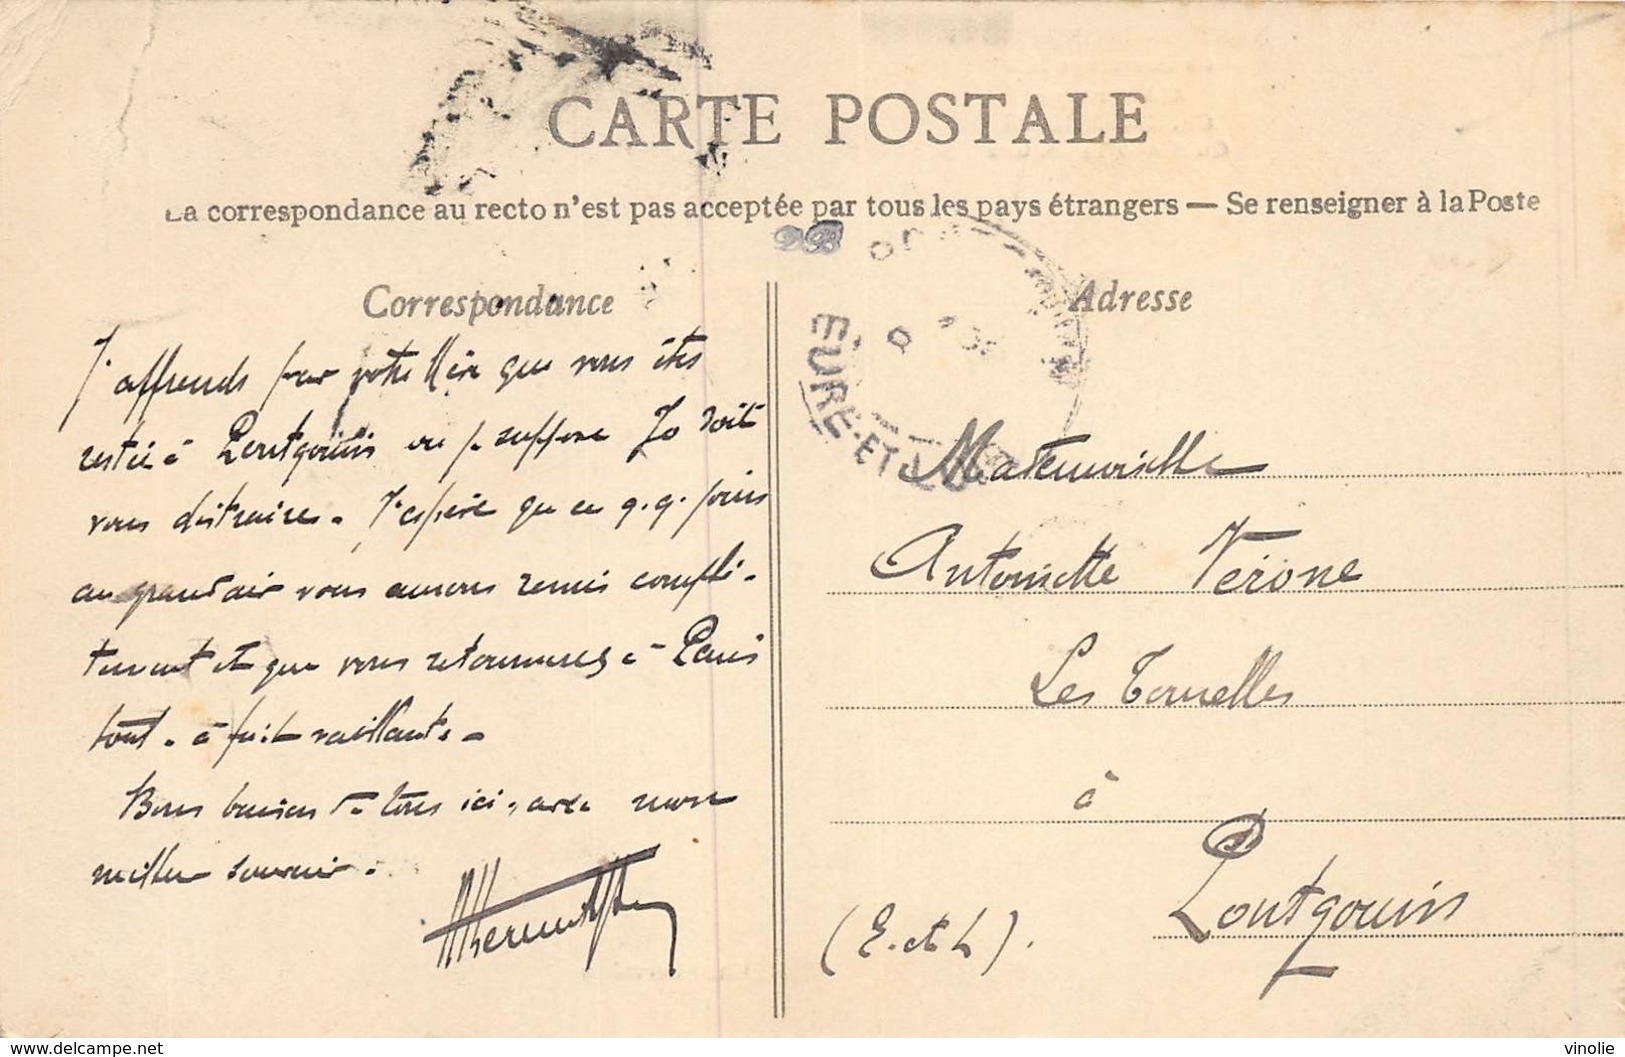 CARTE POSTALE
La correspondance au recto n'est pas acceptée par tous les pays étrangers — Se renseigner à la Poste
Correspondance
J'apprends par votre Mère que vous êtes
restée à Pontgouin où je suppose Jo doit
vous distraire. J'espère que ces q.q. jours
au grand air vous aurons remis complè-
tement et que vous retournerez à Paris
tout-à fait vaillante.
Bons baisers de tous ici, avec mon
meilleur souvenir.
Adresse
EURE-ET-
Mademoiselle
Antoinette Verone
Les Tournelles
à
Pontgouin
(E. et L).
www.delcampe.net
vinolie